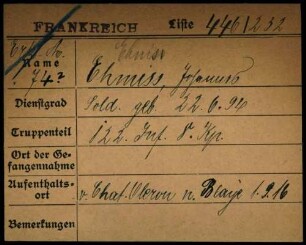 FRANKREICH Liste 446/252
Ehmise
Name Ehmise, Johannes
742
Dienstgrad Sold. geb. 22.6.94
Truppenteil 122. Inf. 8. Kp.
Ort der Gefangennahme
Aufenthaltsort v. Chat. Oleron n. Blaye 1.9.16
Bemerkungen